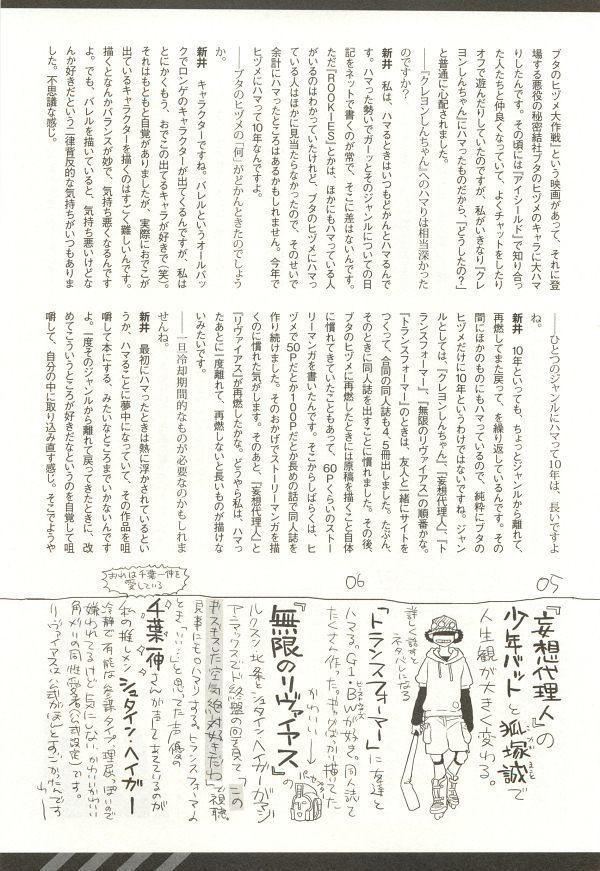 ブタのヒヅメ大作戦』という映画があって、それに登
場する悪役の秘密結社ブタのヒヅメのキャラに大ハマ
りしたんです。その頃には『アイシールド』で知り合っ
た人たちと仲良くなっていて、よくチャットをしたり
オフで遊んだりしていたのですが、私がいきなり『クレ
ヨンしんちゃん』にハマったものだから、「どうしたの？」
と普通に心配されました。
――『クレヨンしんちゃん』へのハマりは相当深かった
のですか？
新井　私は、ハマるときはいつもどかんとハマるんで
す。ハマった勢いでガーッとそのジャンルについての日
記をネットで書くのが常で、そこに差はないんです。
ただ『ROOKIES』とかは、ほかにもハマっている人
がいるのはわかっていたけれど、ブタのヒヅメにハマっ
ている人はほかに見当たらなかったので、そのせいで
余計にハマったところはあるかもしれません。今年で
ヒヅメにハマって10年なんですよ。
――ブタのヒヅメの「何」がどかんときたのでしょう
か。
新井　キャラクターですね。バレルというオールバッ
クでロンゲのキャラクターが出てくるんですが、私は
とにかくもう、おでこの出てるキャラが好きで（笑）。
それはもともと自覚がありましたが、実際におでこが
出ているキャラクターを描くのはすごく難しいんです。
描くとなんかバランスが妙で、気持ち悪くなるんです
よ。でも、バレルを描いていると、気持ち悪いけどな
んか好きだという二律背反的な気持ちがいつもありま
した。不思議な感じ。
――ひとつのジャンルにハマって10年は、長いですよ
ね。
新井　10年といっても、ちょっとジャンルから離れて、
再燃してまた戻って、を繰り返しているんです。その
間にほかのものにもハマっているので、純粋にブタの
ヒヅメだけに10年というわけではないですね。ジャン
ルとしては、『クレヨンしんちゃん』、『妄想代理人』、『ト
ランスフォーマー』、『無限のリヴァイアス』の順番かな。
『トランスフォーマー』のときは、友人と一緒にサイトを
つくって、合同の同人誌も4、5冊出しました。たぶん、
そのときに同人誌を出すことに慣れました。その後、
ブタのヒヅメに再燃したときには原稿を描くこと自体
に慣れてきていたこともあって、60Pくらいのストー
リーマンガを書いたんです。そこからしばらくは、ヒ
ヅメで50Pだとか100Pだとか長めの話で同人誌を
作り続けました。そのおかげでストーリーマンガを描
くのに慣れた気がします。そのあと、『妄想代理人』と
『リヴァイアス』が再燃したかな。どうやら私は、ハマっ
たあとに一度離れて、再燃しないと長いものが描けな
いみたいです。
――一旦冷却期間的なものが必要なのかもしれま
せんね。
新井　最初にハマったときは熱に浮かされているとい
うか、ハマることに夢中になっていて、その作品を咀
嚼して本にする、みたいなところまでいかないんです
よ。一度そのジャンルから離れて戻ってきたときに、改
めてこういうところが好きだなというのを自覚して咀
嚼して、自分の中に取り込み直す感じ。そこでようや
05
『妄想代理人』の
少年バットと狐塚誠で
人生観が大きく変わる。
詳しく話すと
ネタバレになる
06
「トランスフォーマー」に友達と
ハマる。G1・BWが好き。同人誌て
たくさん作った。
かわいい
『無限のリヴァイアス』の
ルクスン北条とシュタイン・ヘイガーがマジ
「この
ギスギスした空気絶対好きだわ」で視聴、
見事にもロハマりする。トランスフォーマーの
とき「いい…」と思ってた声優の
千葉一伸さんが声をあてているのが
私の推しメン シュタイン・ヘイガー
冷静で有能な参謀タイプ、理屈っぽいので
嫌われてるけど気にしない、かわいかわいい
角メガの同性愛者(公式設定)です。
リヴァイアスは公式がほんとすごかったんです
おれは千葉一伸を
愛している